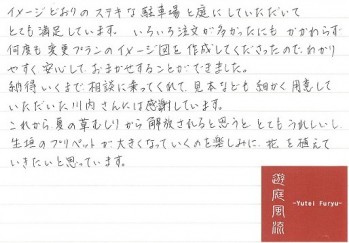 イメージどおりの ステキな 駐車場 と 庭に していただいて
とても 満足しています。 いろいろ 注文が 多かったにも かかわらず
何度も 変更プランの イメージ図を 作成してくださったので、わかり
やすく 安心して、おまかせすることが できました。
納得いくまで 相談に 乗ってくれて、見本なども 細かく 用意して
いただいた 川内さんには 感謝しています。
これから 夏の 草むしりから 解放されると 思うと とても うれしいし、
生垣の プリペットが 大きくなっていくのを 楽しみに、花を 植えて
いきたいと 思っています。
遊庭風流
-Yutei Furyu-